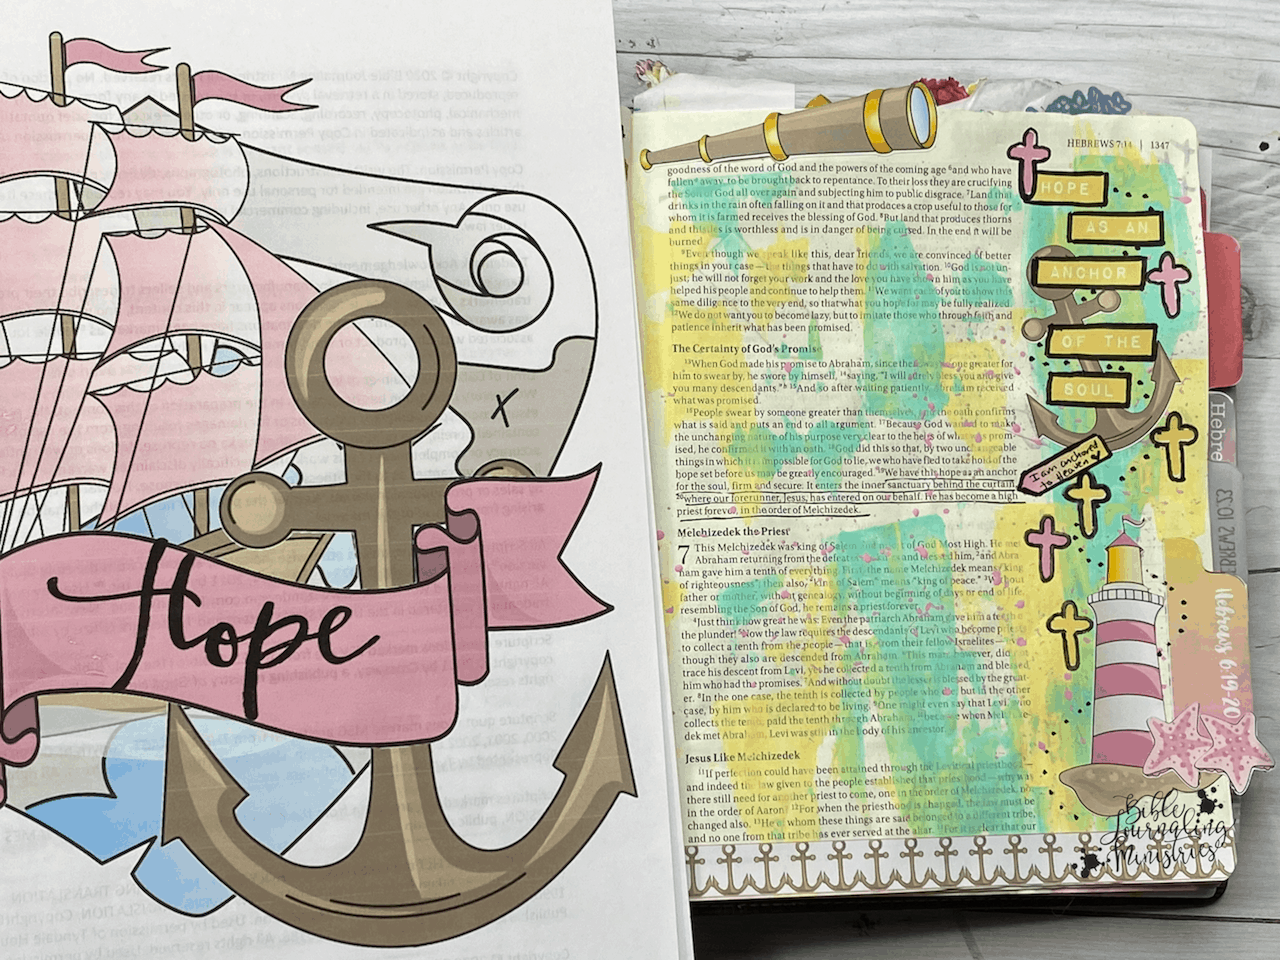 Hope
HEBREWS 7:14 | 1347
HOPE
AS AN
ANCHOR
OF THE
SOUL
I am anchored
to Heaven
goodness of the word of God and the powers of the coming age ⁶and who have
fallen away, to be brought back to repentance. To their loss they are crucifying
the Son of God all over again and subjecting him to public disgrace. ⁷Land that
drinks in the rain often falling on it and that produces a crop useful to those for
whom it is farmed receives the blessing of God. ⁸But land that produces thorns
and thistles is worthless and is in danger of being cursed. In the end it will be
burned.
⁹Even though we speak like this, dear friends, we are convinced of better
things in your case — the things that have to do with salvation. ¹⁰God is not un-
just; he will not forget your work and the love you have shown him as you have
helped his people and continue to help them. ¹¹We want each of you to show this
same diligence to the very end, so that what you hope for may be fully realized.
¹²We do not want you to become lazy, but to imitate those who through faith and
patience inherit what has been promised.
The Certainty of God's Promise
¹³When God made his promise to Abraham, since there was no one greater for
him to swear by, he swore by himself, ¹⁴saying, "I will surely bless you and give
you many descendants." ¹⁵And so after waiting patiently, Abraham received
what was promised.
¹⁶People swear by someone greater than themselves, and the oath confirms
what is said and puts an end to all argument. ¹⁷Because God wanted to make
the unchanging nature of his purpose very clear to the heirs of what was prom-
ised, he confirmed it with an oath. ¹⁸God did this so that, by two unchangeable
things in which it is impossible for God to lie, we who have fled to take hold of the
hope set before us may be greatly encouraged. ¹⁹We have this hope as an anchor
for the soul, firm and secure. It enters the inner sanctuary behind the curtain,
²⁰where our forerunner, Jesus, has entered on our behalf. He has become a high
priest forever, in the order of Melchizedek.
Melchizedek the Priest
7 This Melchizedek was king of Salem and priest of God Most High. He met
Abraham returning from the defeat blessed him, ²and Abra
ham gave him a tenth of everything. First, the name Melchizedek means "king
of righteousness"; then also, "king of Salem" means "king of peace." ³Without
father or mother, without genealogy, without beginning of days or end of life,
resembling the Son of God, he remains a priest forever.
⁴Just think how great he was: Even the patriarch Abraham gave him a tenth of
the plunder! ⁵Now the law requires the descendants of Levi who become priests
to collect a tenth from the people — that is, from their fellow Israelites —
though they also are descended from Abraham. ⁶This man, however, did not
trace his descent from Levi, yet he collected a tenth from Abraham and blessed
him who had the promises. ⁷And without doubt the lesser is blessed by the great-
er. ⁸In the one case, the tenth is collected by people who die; but in the other
case, by him who is declared to be living. ⁹One might even say that Levi, who
collects the tenth, paid the tenth through Abraham, ¹⁰because when Melchize-
dek met Abraham, Levi was still in the body of his ancestor.
Jesus Like Melchizedek
¹¹If perfection could have been attained through the Levitical priesthood —
and indeed the law given to the people established that priesthood — why was
there still need for another priest to come, one in the order of Melchizedek, not
in the order of Aaron? ¹²For when the priesthood is changed, the law must be
changed also. ¹³He of whom these things are said belonged to a different tribe,
and no one from that tribe has ever served at the altar. ¹⁴For it is clear that our
Hebre
Hebrews 6:19-20
Bible
Journaling
Ministries